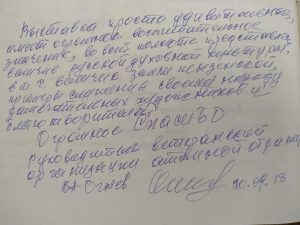 Выставка просто удивительная,
имеет огромное воспитательное
значение, во всей полноте представлено
величие русской духовной культуры,
в т.ч. величие земли пензенской,
примеры служения своему народу
замечательных художников и
благотворителей.
Огромное Спасибо
Руководитель ветеранской
организации атомной отрасли
В.А. Огнев 20.09.18